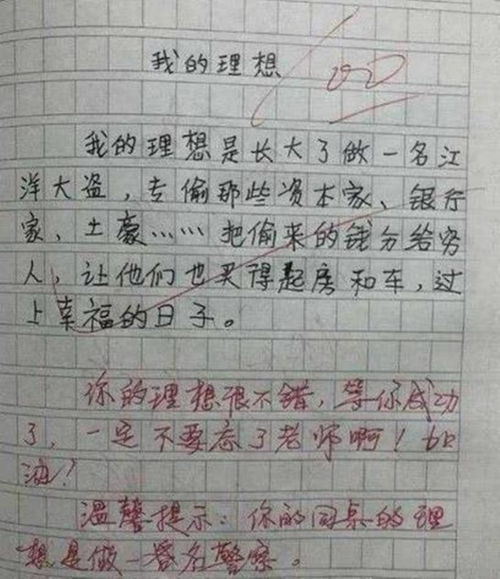 我的理想
我的理想是长大了做一名江
洋大盗，专偷那些资本家、银行
家、土豪……把偷来的钱分给穷
人，让他们也买得起房和车，过
上幸福的日子。
你的理想很不错，等你成功
了，一定不要忘了老师啊！加
油！
温馨提示：你的同桌的理
想是做一番名警察。